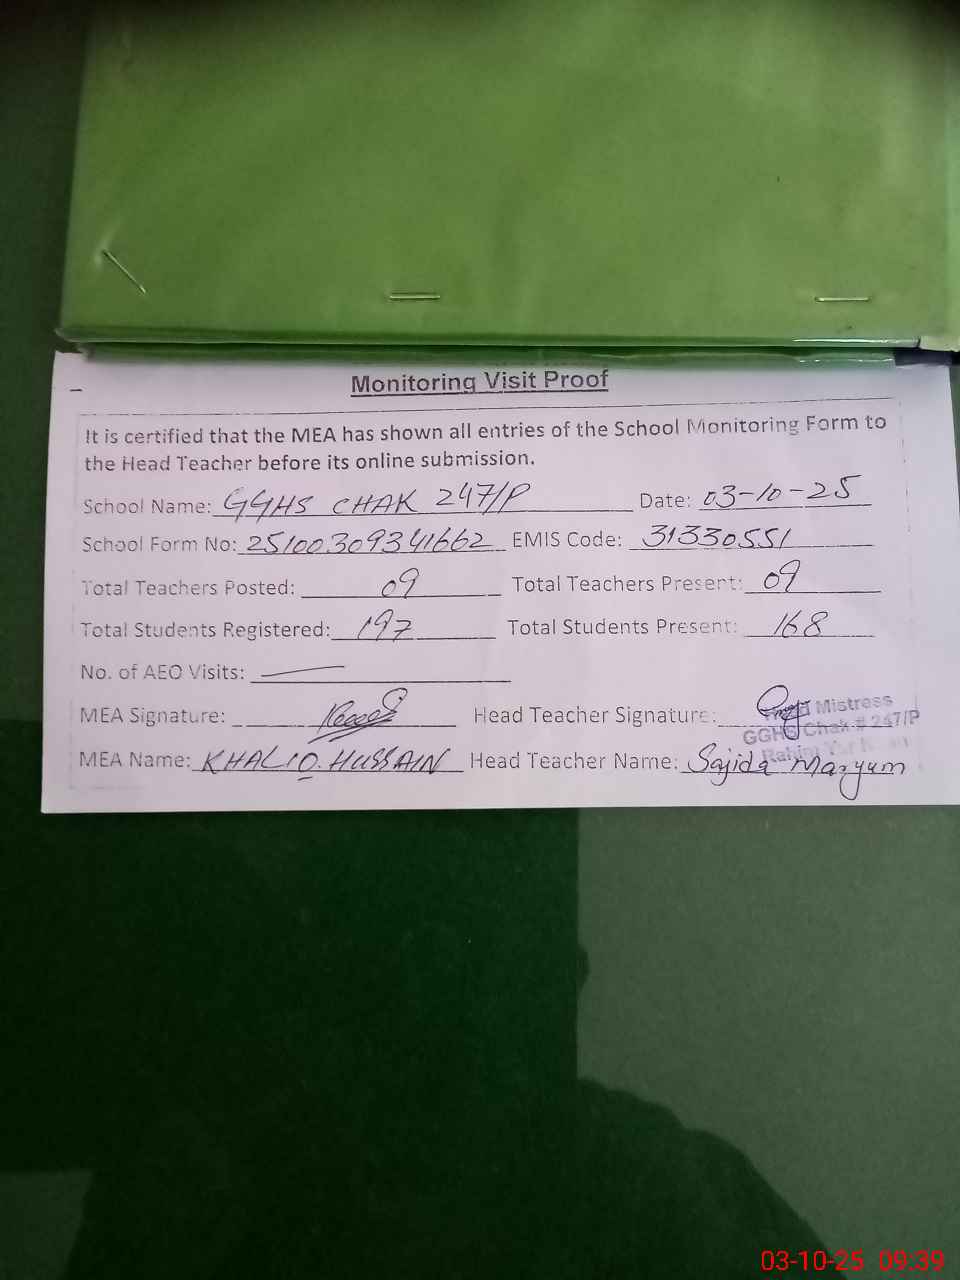 Monitoring Visit Proof
It is certified that the MEA has shown all entries of the School Monitoring Form to
the Head Teacher before its online submission.
School Name: GGHS CHAK 247/P Date: 03-10-25
School Form No: 25100309341662 EMIS Code: 31330551
Total Teachers Posted: 09 Total Teachers Present: 09
Total Students Registered: 197 Total Students Present: 168
No. of AEO Visits: —
MEA Signature: Head Teacher Signature:
Mistress
GGHS Chak # 247/P
Rahim Yar
MEA Name: KHALIQ. HUSSAIN Head Teacher Name: Sajida Maryum
03-10-25 09:39